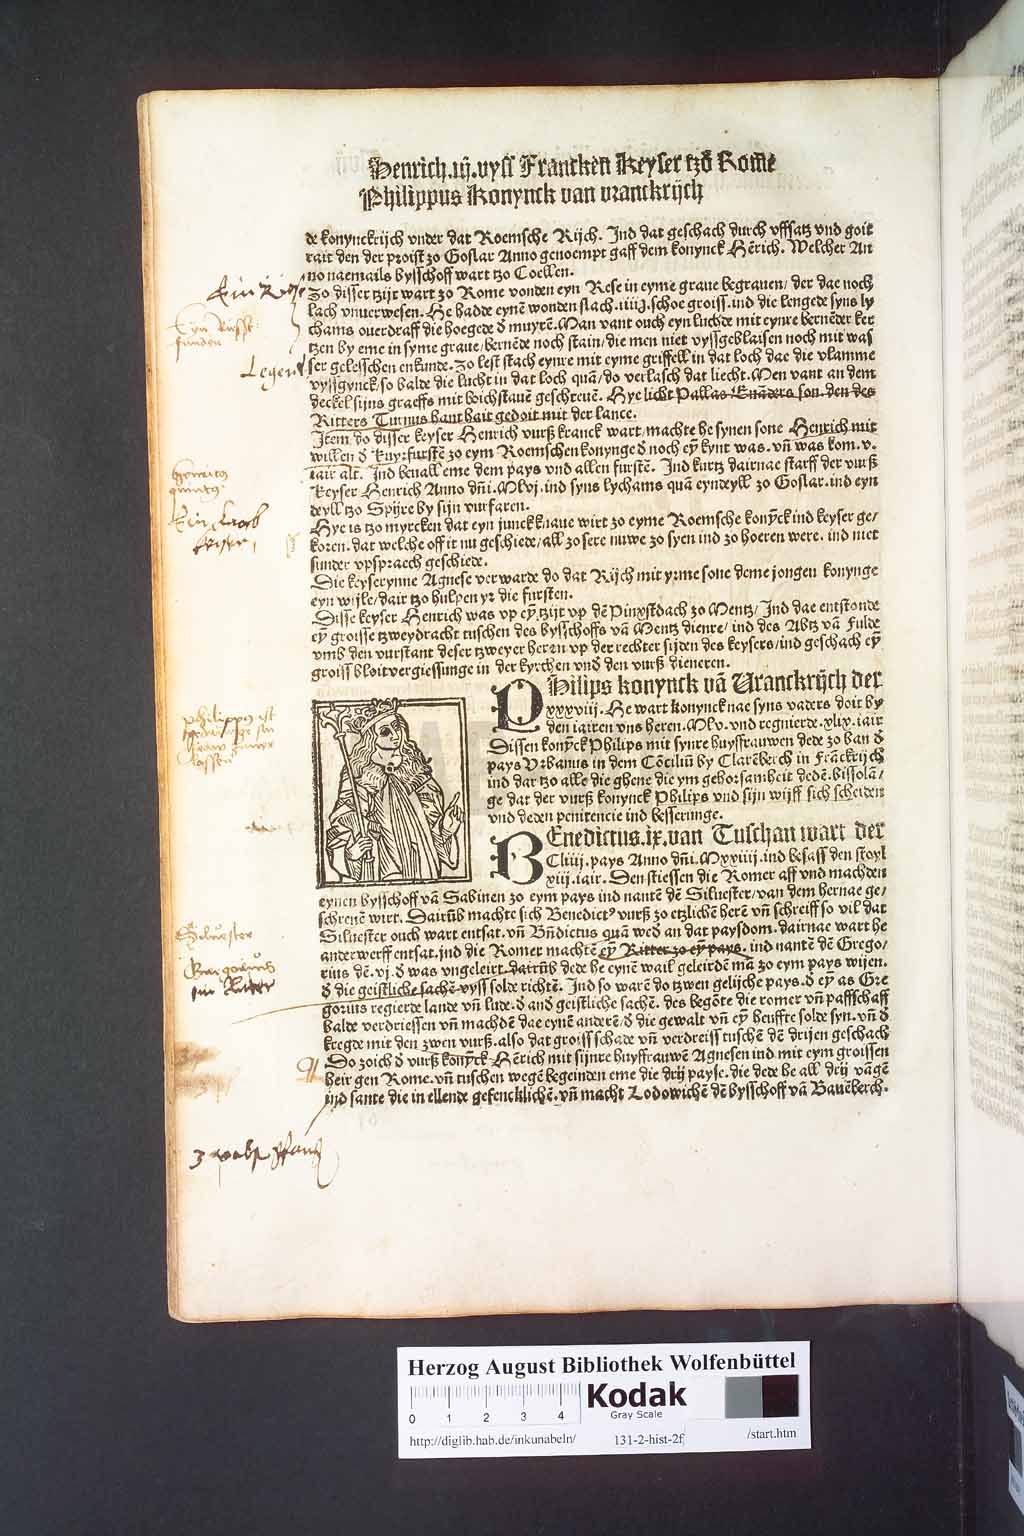 Henrich.iij.vyß Francken Keyser tzo Rome
Philippus Konynck van vranckrijch
de konynckrijch vnder dat Roemsche Rijch. Ind dat geschach durch vffsatz vnd goit
rait den der proist zo Goslar Anno genoempt gaff dem konynck Hērich. Welcher An
no naemails bysschoff wart tzo Coellen.
Zo disser tzijt wart zo Rome vonden eyn Rese in eyme graue begrauen/ der dae noch
lach vnuerwesen. He hadde eynē wonden slach .iiij. schoe groiss. ind die lengede syns ly
chams ouerdraff die hoegede d muyrē. Man vant ouch eyn luchde mit eynre bernēder ker
tzen by eme in syme graue/ bernēde noch stain/ die men niet vyssgeblaisen noch mit was
ser gelesschen enkunde. Zo lest stach eynre mit eyme griffell in dat loch dae die vlamme
vyssgynck/ so balde die lucht in dat loch quā/ do verlasch dat liecht. Men vant an dem
deckel sijns graeffs mit boichstauē geschreuē. Hye licht Pallas Euāders son. den des
Ritters Turnus hant hait gedoit mit der lance.
Item do disser keyser Henrich vurß kranck wart/ machte he synen sone Henrich mit
willen d Kuyrfurstē zo eym Roemschen konynge d noch eȳ kynt was. vñ was kom .v.
iair alt. Ind beuall eme dem pays vnd allen furstē. Ind kurtz dairnae starff der vurß
Keyser Henrich Anno dñi. Mlvj. ind syns lychams quā eyndeyll zo Goslar. ind eyn
deyll tzo Spijre by sijn vurfaren.
Hye is tzo myrcken dat eyn junckknaue wirt zo eyme Roemsche konȳck ind keyser ge/
koren. dat welche off it nu geschiede/ all zo sere nuwe zo syen ind zo hoeren were. ind niet
sunder vpspraech geschiede.
Die keyserynne Agnese verwarde do dat Rijch mit yrme sone deme jongen konynge
eyn wijle/ dair tzo hulpen yr die fursten.
Disse keyser Henrich was vp eȳ tzijt vp dē Pinxstdach zo Mentz/ Ind dae entstonde
eȳ groisse tzweydracht tuschen des bysschoffs vā Mentz dienre/ ind des Abtz vā Fulde
vmb den vurstant deser tzweyer heren vp der rechter sijden des keysers/ ind geschach eȳ
groiss bloitvergiessunge in der kyrchen vnd den vurß dieneren.
PHilips konynck vā Vranckrijch der
xxxviij. He wart konynck nae syns vaders doit by
den iairen vns heren. Mlv. vnd regnierde .xlix. iair
Dissen konȳck Philips mit synre huysfrauwen dede zo ban d
pays Vrbanus in dem Cōciliū by Clarēberch in Frāckrijch
ind dar tzo alle die ghene die ym gehorsamheit dedē. bissolā/
ge dat der vurß konynck Philips vnd sijn wijff sich scheiden
vnd deden penitencie ind besserunge.
BEnedictus.ix. van Tuschan wart der
Cliiij. pays Anno dñi. Mxxiiij. ind besass den stoyl
xiij. iair. Den stiessen die Romer aff vnd machden
eynen bysschoff vā Sabinen zo eym pays ind nantē dē Siluester/ van dem hernae ge/
schreuē wirt. Dairūb machte sich Benedict9 vurß zo etzlichē herē vñ schreiff so vil dat
Siluester ouch wart entsat. vñ Bñdictus quā wed an dat paysdom. dairnae wart he
anderwerff entsat. ind die Romer machtē eȳ Ritter zo eȳ pays. ind nantē dē Grego/
rius dē .vj. d was vngeleirt. dairūb dede he eynē wail geleirdē mā zo eym pays wijen.
d die geistliche sachē vyss solde richtē. Ind so warē do tzwen gelijche pays. d eȳ as Gre
gorius regierde lande vñ lude. d and geistliche sachē. des begōte die romer vñ paffschaff
balde verdriessen vñ machdē dae eynē anderē/ d die gewalt vñ eȳ beuffte solde syn. vñ d
kregde mit den zwen vurß. also dat groiss schade vñ verdreiss tuschē dē drijen geschach
Do zoich d vurß konȳck Hērich mit sijnre huyffrauwē Agnesen ind mit eym groissen
heir gen Rome. vñ tuschen wegē begeinden eme die drij payse. die dede he all drij vāgē
ind sante die in ellende gefencklichē. vñ macht Lodowichē dē bysschoff vā Bauēberch.
Legend
henricus
quintus
philippus ist
Siluester
Gregorius
ein Ritter
Herzog August Bibliothek Wolfenbüttel
Kodak
Gray Scale
0 1 2 3 4
http://diglib.hab.de/inkunabeln/ 131-2-hist-2f /start.htm